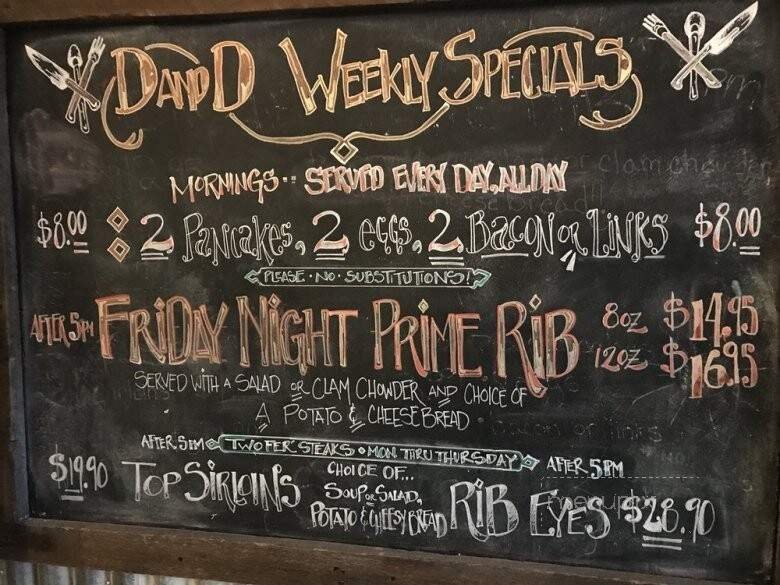 DANDD WEEKLY SPECIALS
MORNINGS·· SERVED EVERY DAY, ALL DAY
$8.00 2 PANCAKES, 2 EGGS, 2 BACON OR LINKS $8.00
PLEASE·NO·SUBSTITUTIONS!
AFTER 5PM FRIDAY NIGHT PRIME RIB 8OZ $14.95
12OZ $16.95
SERVED WITH A SALAD OR CLAM CHOWDER AND CHOICE OF
A POTATO & CHEESE BREAD·
AFTER 5PM TWO FER STEAKS·MON. THRU THURSDAY AFTER 5PM
$19.90 TOP SIRLOINS CHOICE OF... RIB EYES $28.90
SOUP OR SALAD,
POTATO & CHEESY BREAD